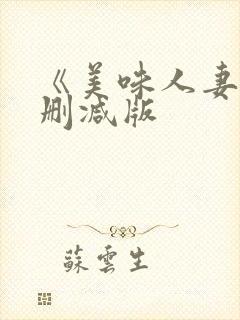 《美味人妻
删减版
蘇雲生